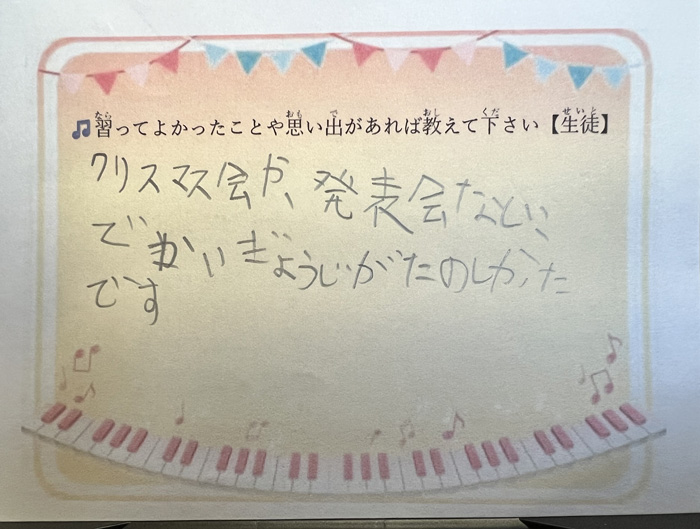 ♫習ってよかったことや思い出があれば教えて下さい【生徒】
クリスマス会か、発表会など、
でかいぎょうじがたのしかった
です